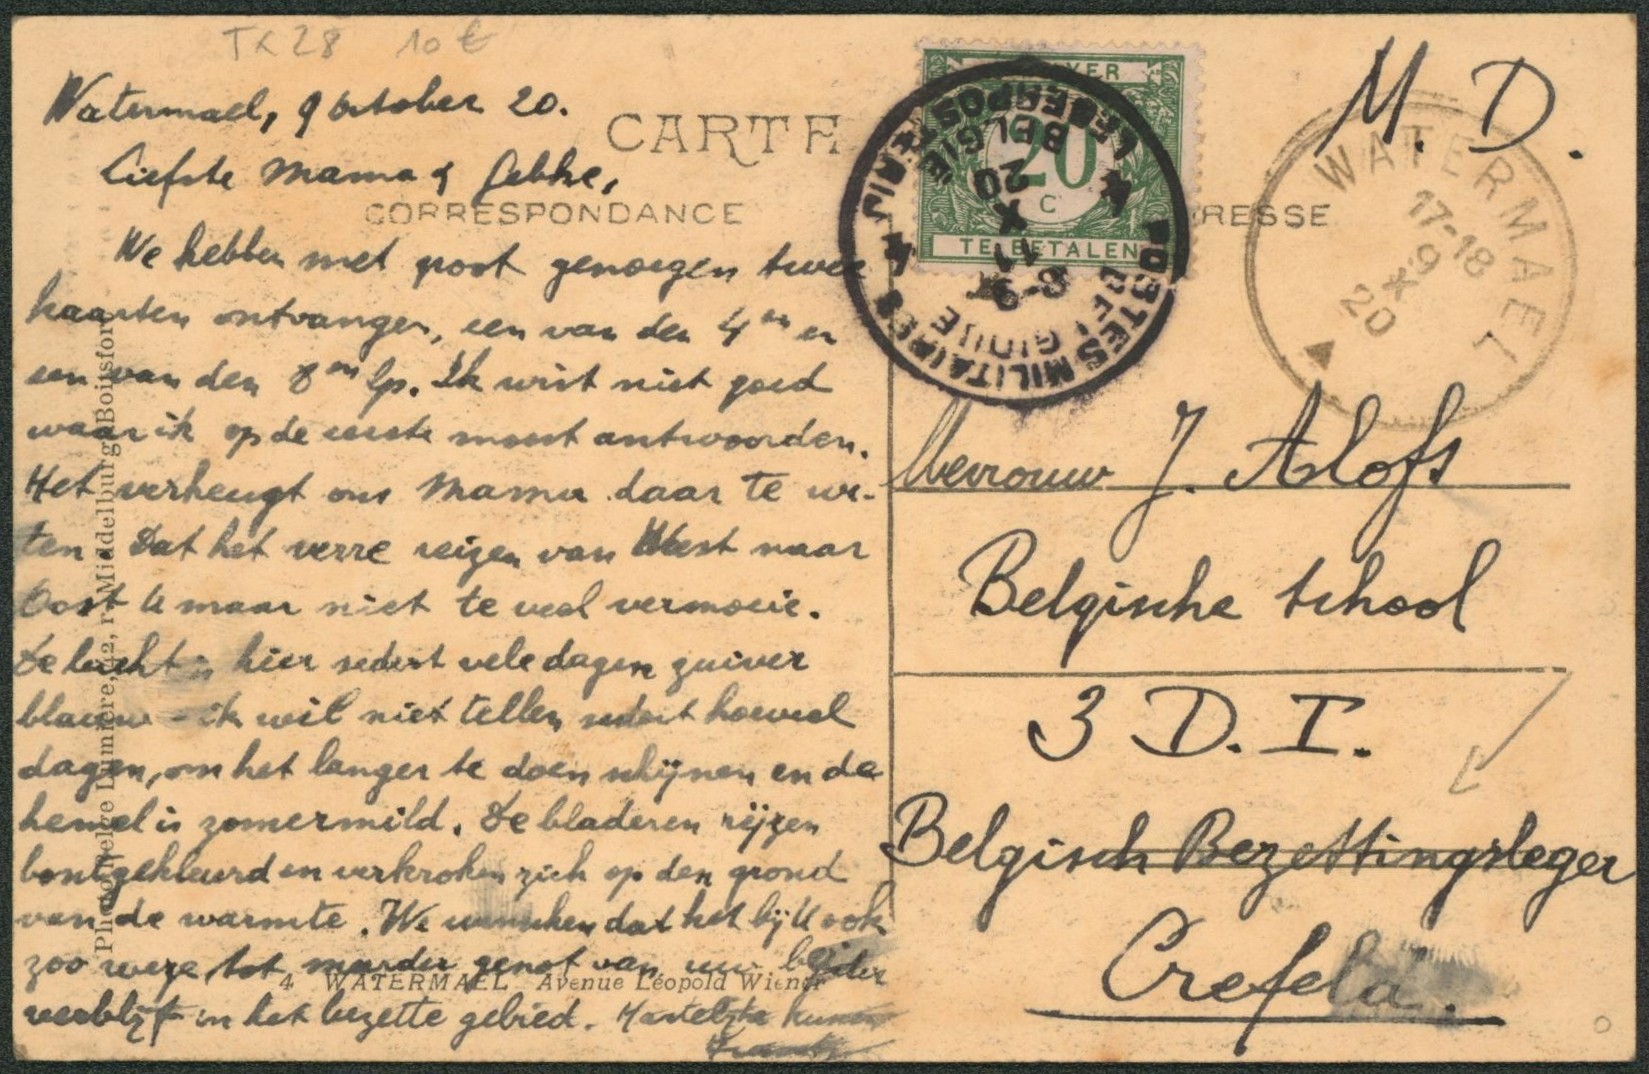 TX 28 10 €
Watermael, 9 October 20.
CARTE
Liefste Mama &
CORRESPONDANCE
We hebben met groot genoegen twee
kaarten ontvangen, een van den 4en en
een van den 8en lp. Ik wist niet goed
waar ik op de eerste moest antwoorden.
Het verheugt ons Mama daar te we-
ten. Dat het verre reizen van West naar
Oost U maar niet te veel vermoeie.
De lucht is hier sedert vele dagen zuiver
blauw - ik wil niet tellen sedert hoeveel
dagen, om het langer te doen schijnen en de
hemel is zomermild. De bladeren
bontgekleurd en verkroken zich op den grond
van de warmte. We wenschen dat het bij U ook
zoo weze tot genot van uw beider
verblijf in het bezette gebied. Hartelijke kussen
4 WATERMAEL Avenue Léopold Wiener
Phototypie Belge Lumière, 42, r. Middelburg Boitsfort
A PAYER
20
C
TE BETALEN
POSTES MILITAIRES
BELGIQUE
8-9
11
X
20
BELGIË
LEGERPOSTERIJ
RESSE
WATERMAEL
17-18
9
X
20
M. D.
Mevrouw J. Alofs
Belgische School
3 D. I.
Belgisch Bezettingsleger
Crefeld.